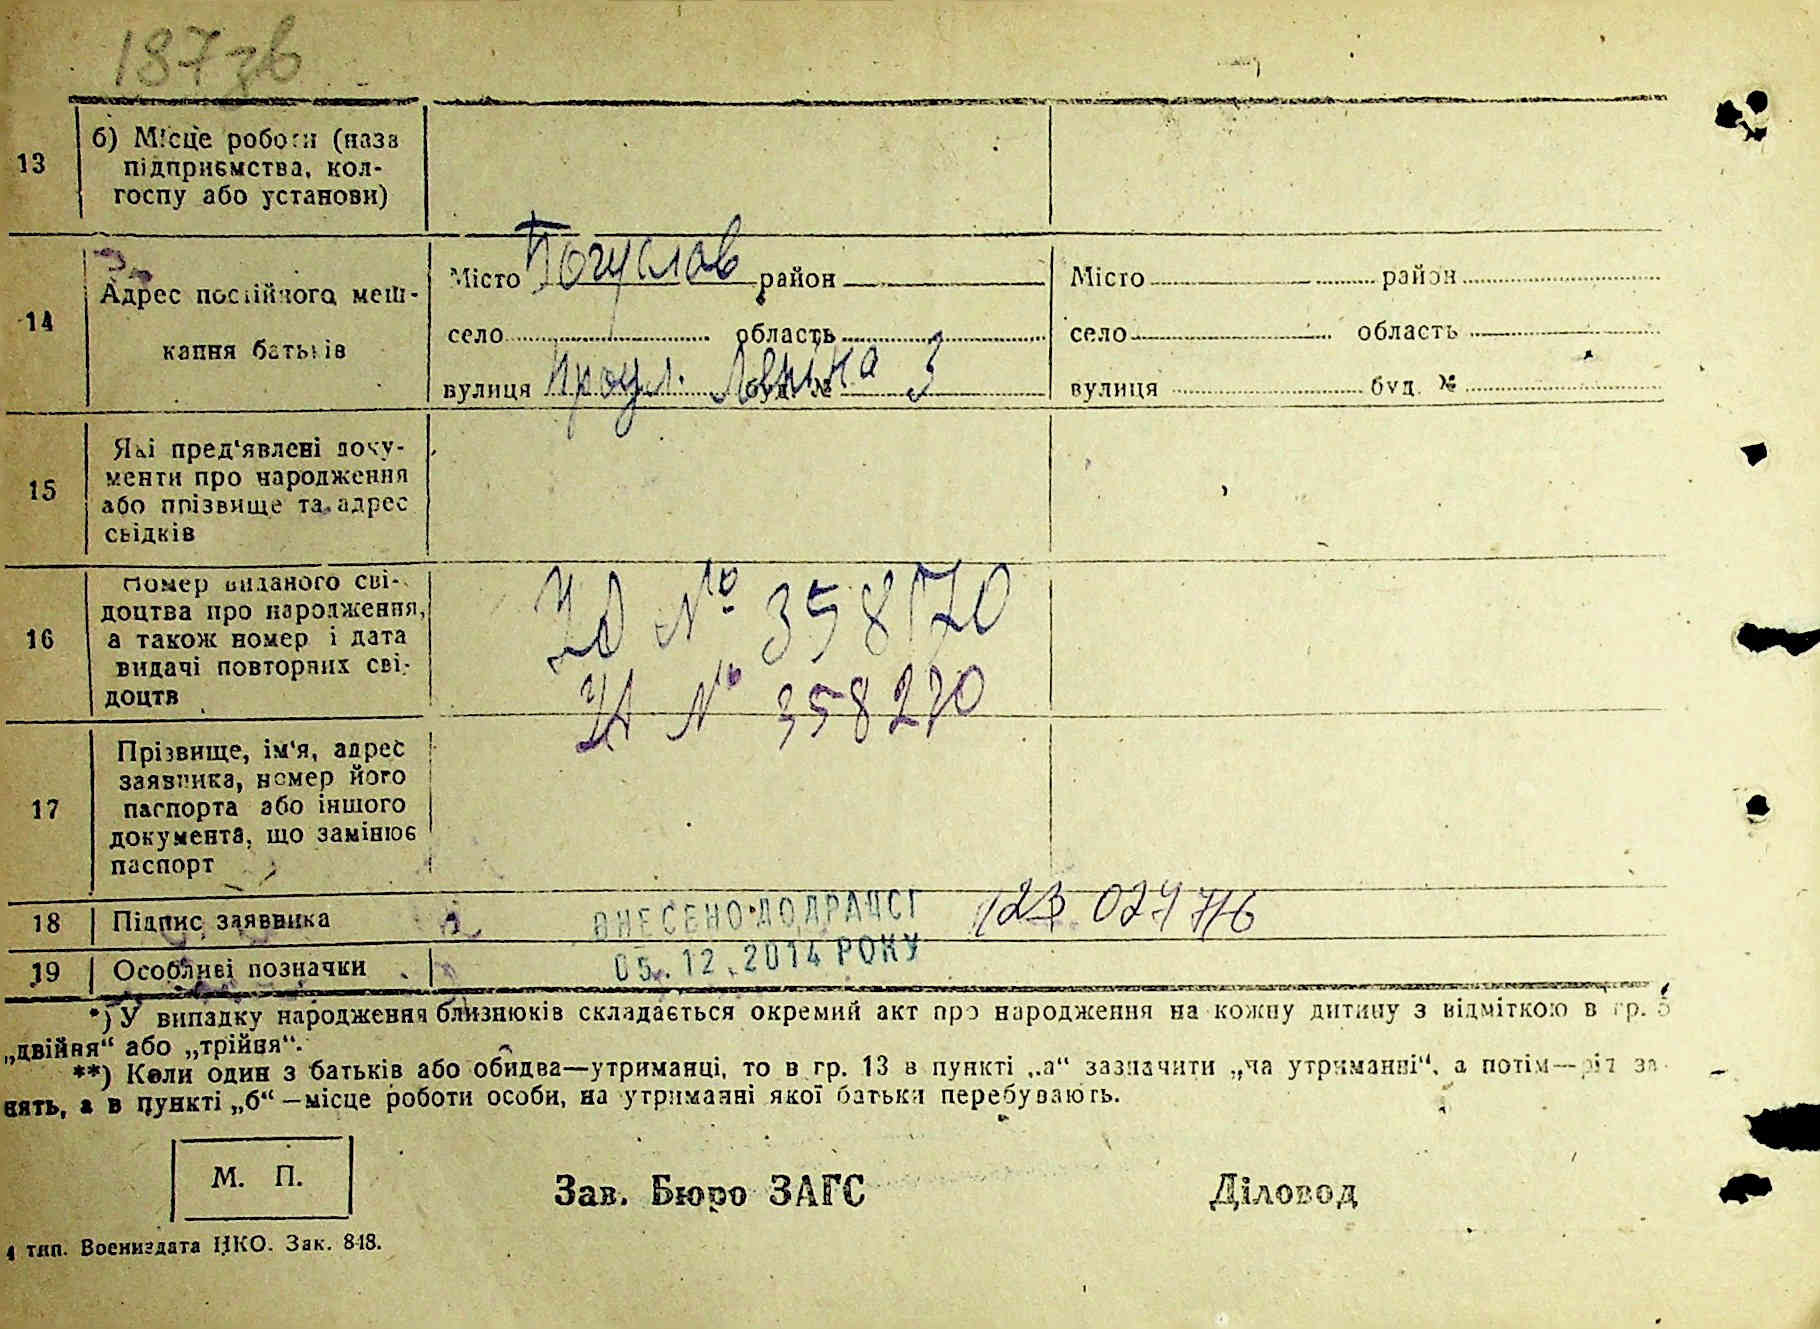 187 зв
13
б) Місце роботи (назв
підприємства, кол-
госпу або установи)
14
Адрес постійного меш-
кання батьків
Місто Богуслав район
село область
вулиця Провул. Леніна буд. № 3
Місто район
село область
вулиця буд. №
15
Які пред'явлені доку-
менти про народження
або прізвище та адрес
свідків
16
Номер виданого сві-
доцтва про народження,
а також номер і дата
видачі повторних сві-
доцтв
№ 358170
№ 358270
17
Прізвище, ім'я, адрес
заявника, номер його
паспорта або іншого
документа, що замінює
паспорт
18 Підпис заявника
ВНЕСЕНО ДО ДРАЦСГ
05.12.2014 РОКУ
19 Особливі позначки
*) У випадку народження близнюків складається окремий акт про народження на кожну дитину з відміткою в гр. 5
„двійня“ або „трійня“.
**) Коли один з батьків або обидва—утриманці, то в гр. 13 в пункті „а“ зазначити „на утриманні“, а потім—рід за-
нять, а в пункті „б“—місце роботи особи, на утриманні якої батьки перебувають.
М. П.
Зав. Бюро ЗАГС
Діловод
4 тип. Воениздата НКО. Зак. 848.